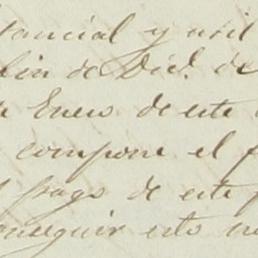 tancial y util
fin de Dic.e de
Enero de este
compone el
pago de este
onseguir esto